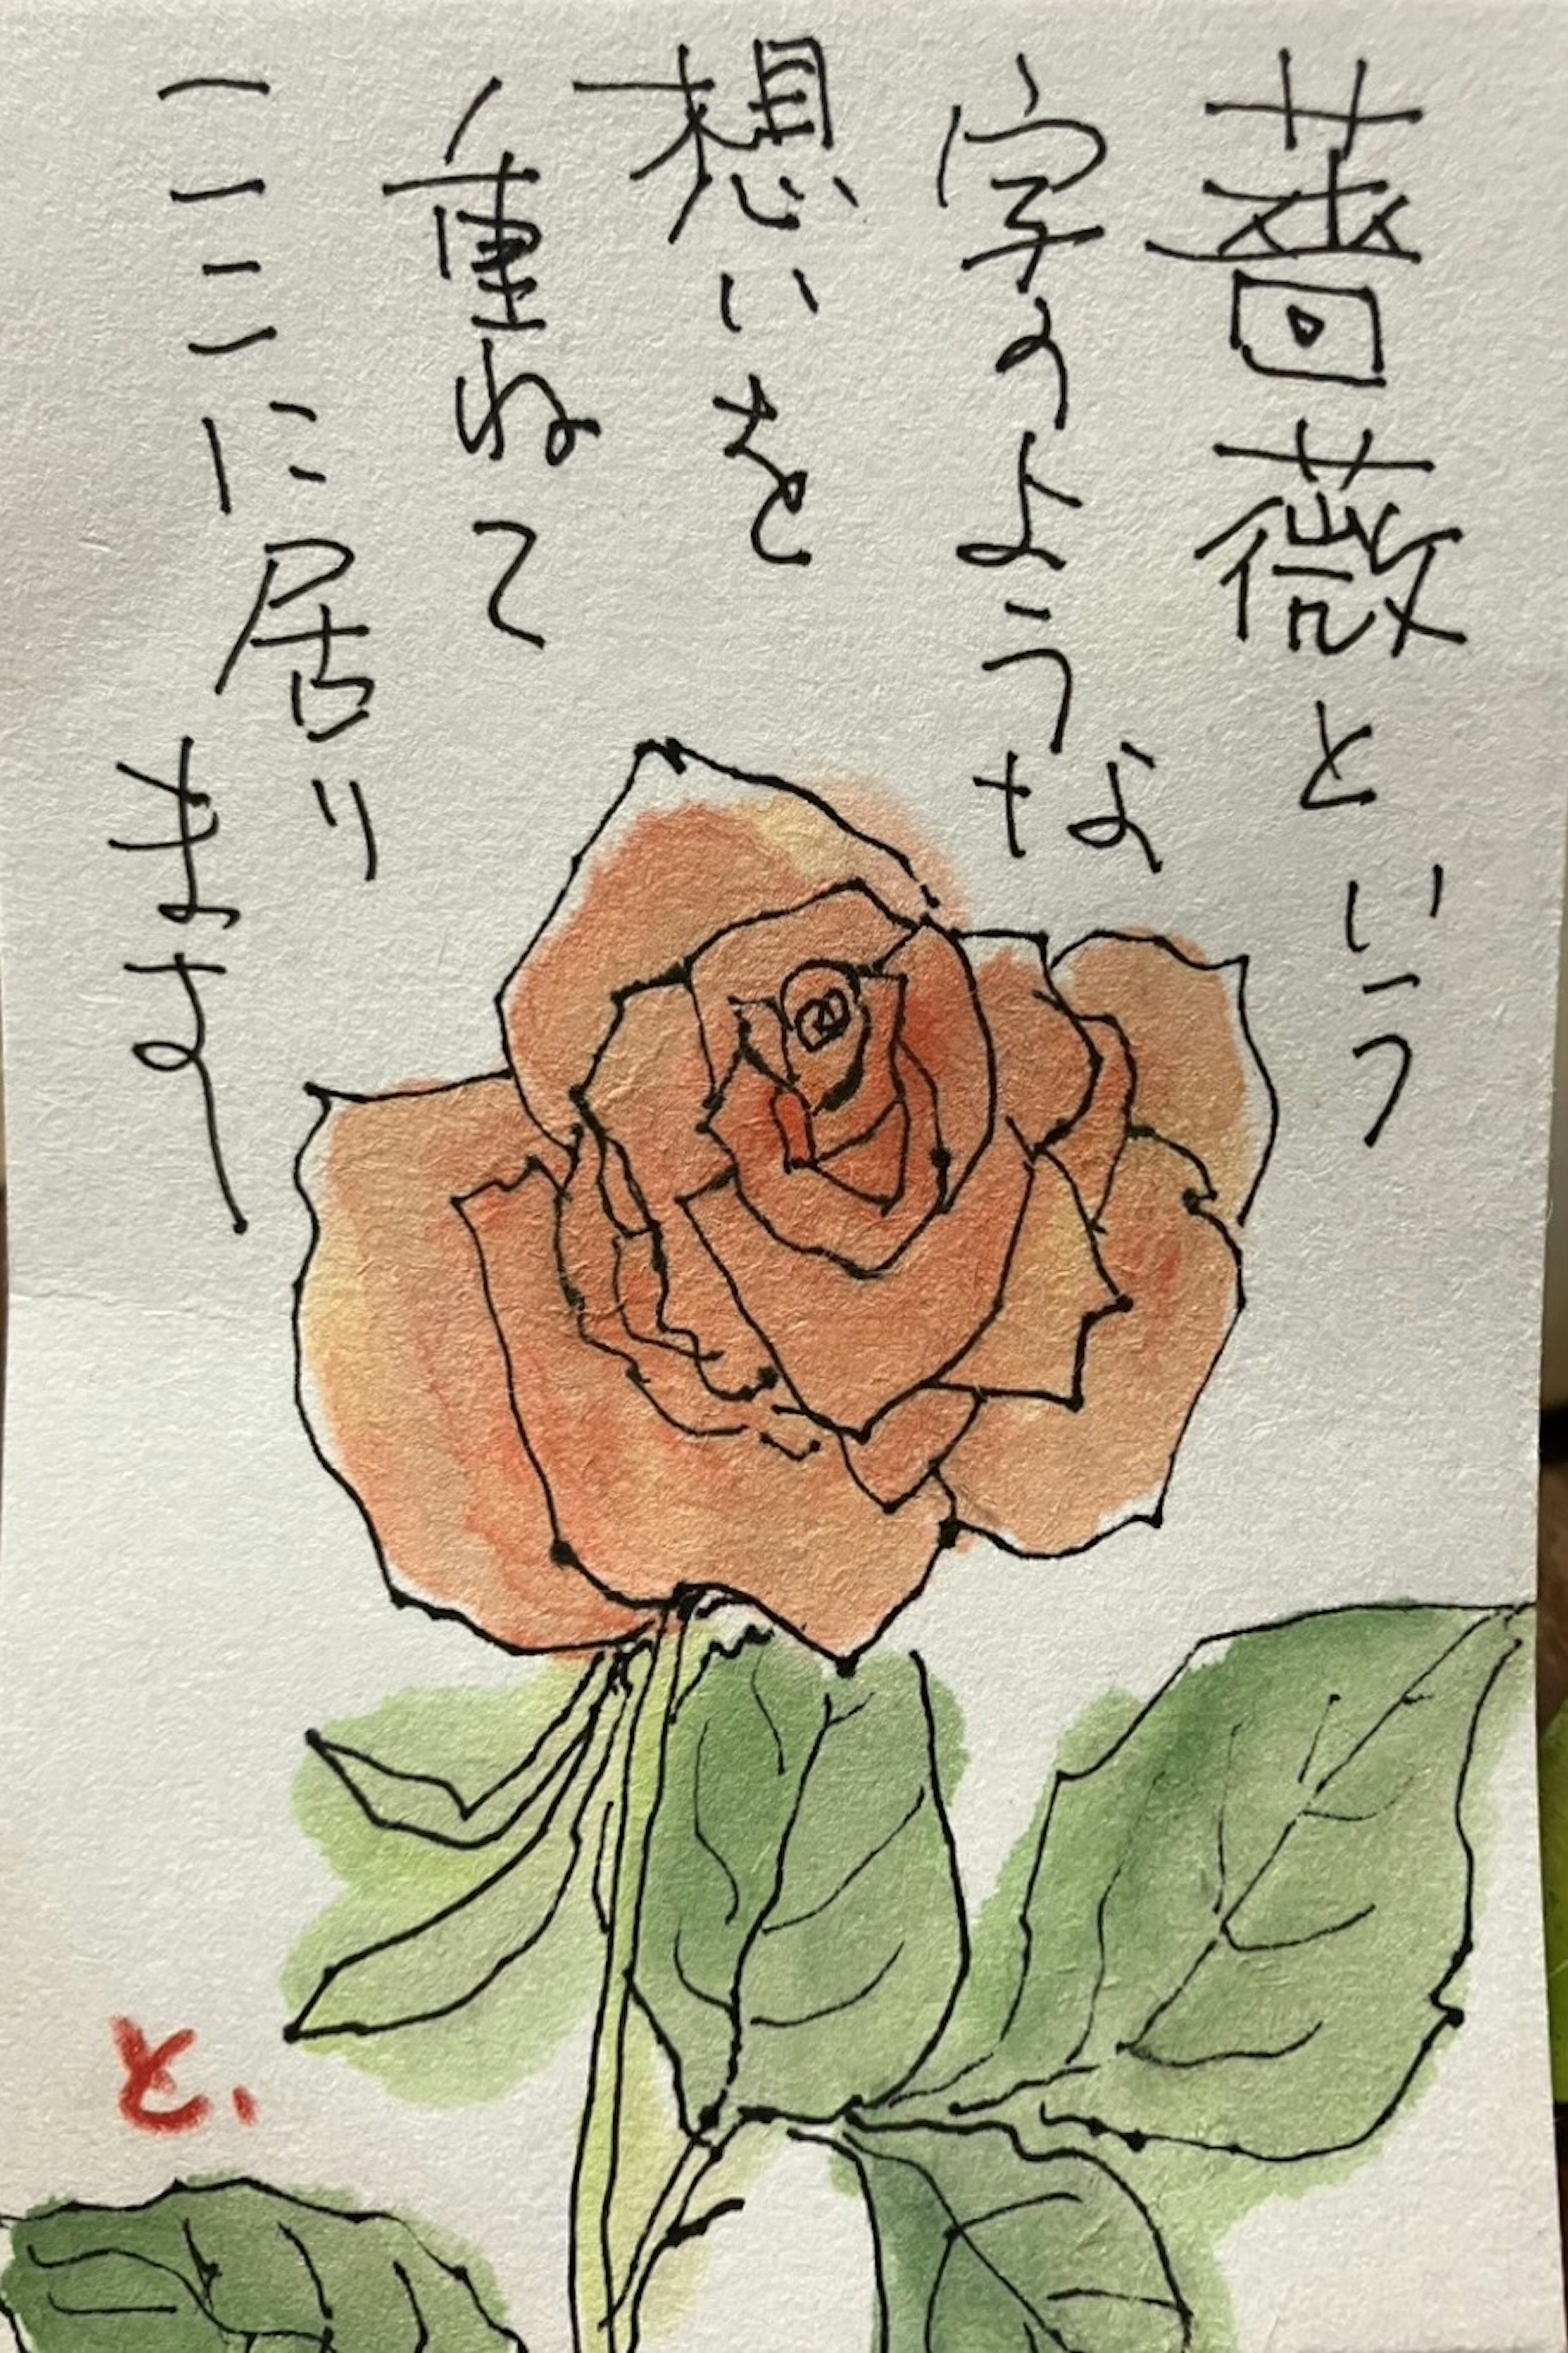 薔薇という
字のような
想いを
重ねて
ここに居り
ます
と、